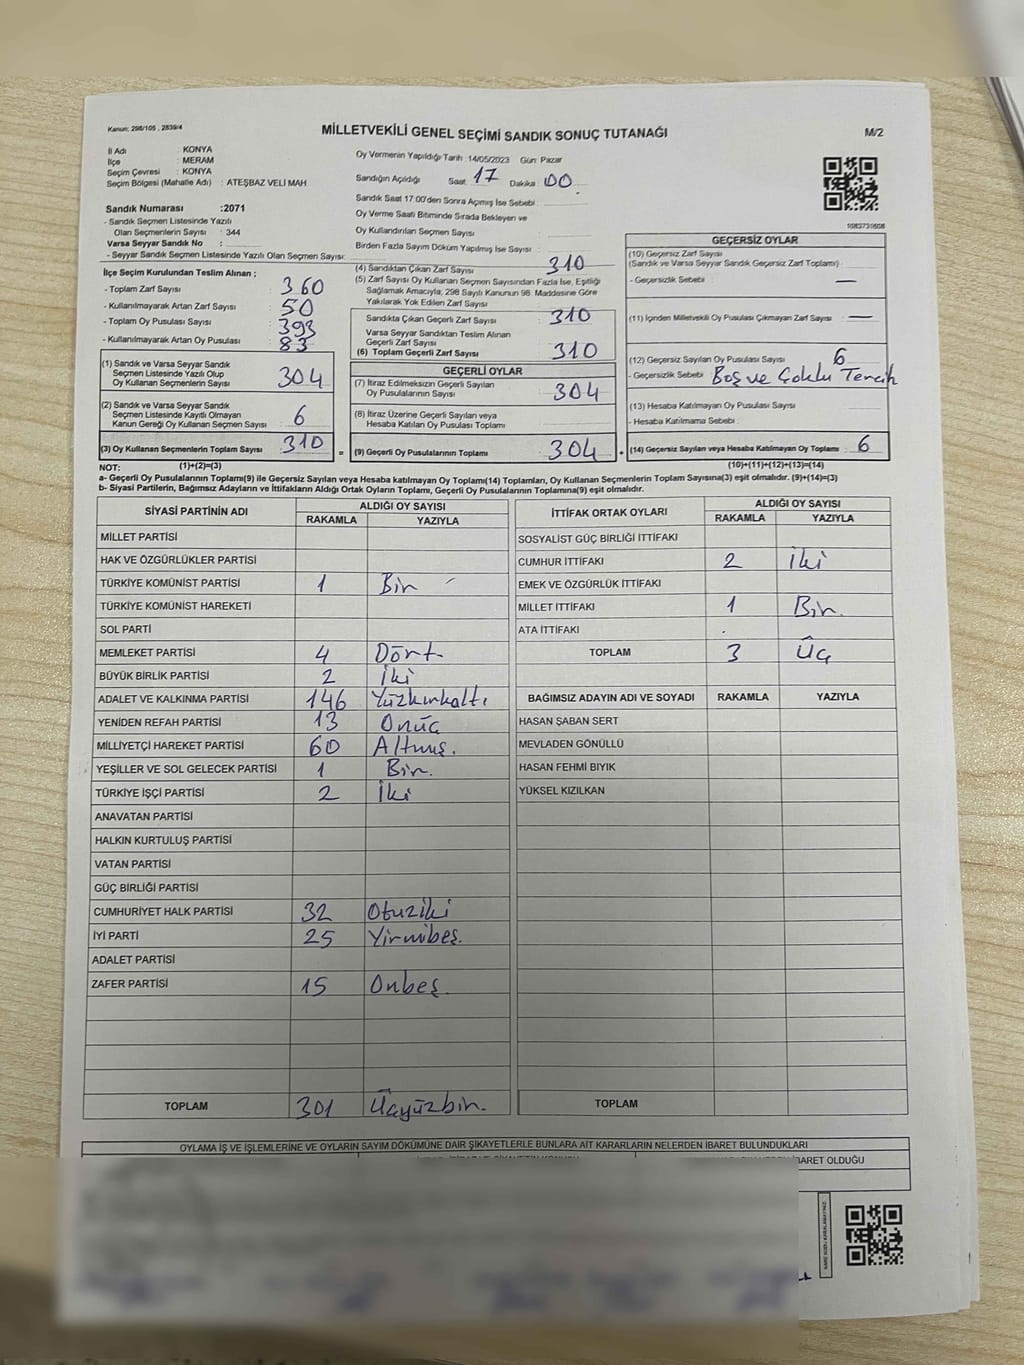 Kanun; 298/105 , 2839/4
MİLLETVEKİLİ GENEL SEÇİMİ SANDIK SONUÇ TUTANAĞI
M/2
İl Adı : KONYA
İlçe : MERAM
Seçim Çevresi : KONYA
Seçim Bölgesi (Mahalle Adı) : ATEŞBAZ VELİ MAH
Oy Vermenin Yapıldığı Tarih : 14/05/2023 Gün: Pazar
Sandığın Açıldığı Saat 17 Dakika 00
Sandık Saat 17:00'den Sonra Açmış İse Sebebi :
Oy Verme Saati Bitiminde Sırada Bekleyen ve
Oy Kullandırılan Seçmen Sayısı :
Birden Fazla Sayım Döküm Yapılmış İse Sayısı :
Sandık Numarası :2071
- Sandık Seçmen Listesinde Yazılı
Olan Seçmenlerin Sayısı : 344
Varsa Seyyar Sandık No :
- Seyyar Sandık Seçmen Listesinde Yazılı Olan Seçmen Sayısı:
İlçe Seçim Kurulundan Teslim Alınan ;
- Toplam Zarf Sayısı : 360
- Kullanılmayarak Artan Zarf Sayısı : 50
- Toplam Oy Pusulası Sayısı : 393
- Kullanılmayarak Artan Oy Pusulası : 83
(1) Sandık ve Varsa Seyyar Sandık
Seçmen Listesinde Yazılı Olup
Oy Kullanan Seçmenlerin Sayısı : 304
(2) Sandık ve Varsa Seyyar Sandık
Seçmen Listesinde Kayıtlı Olmayan
Kanun Gereği Oy Kullanan Seçmen Sayısı : 6
(3) Oy Kullanan Seçmenlerin Toplam Sayısı : 310
(1)+(2)=(3)
(4) Sandıktan Çıkan Zarf Sayısı : 310
(5) Zarf Sayısı Oy Kullanan Seçmen Sayısından Fazla İse, Eşitliği
Sağlamak Amacıyla, 298 Sayılı Kanunun 98. Maddesine Göre
Yakılarak Yok Edilen Zarf Sayısı :
Sandıkta Çıkan Geçerli Zarf Sayısı : 310
Varsa Seyyar Sandıktan Teslim Alınan
Geçerli Zarf Sayısı :
(6) Toplam Geçerli Zarf Sayısı : 310
GEÇERLİ OYLAR
(7) İtiraz Edilmeksizin Geçerli Sayılan
Oy Pusulalarının Sayısı : 304
(8) İtiraz Üzerine Geçerli Sayılan veya
Hesaba Katılan Oy Pusulası Toplamı :
= (9) Geçerli Oy Pusulalarının Toplamı : 304
GEÇERSİZ OYLAR
(10) Geçersiz Zarf Sayısı
(Sandık ve Varsa Seyyar Sandık Geçersiz Zarf Toplamı) :
- Geçersizlik Sebebi : —
(11) İçinden Milletvekili Oy Pusulası Çıkmayan Zarf Sayısı : —
(12) Geçersiz Sayılan Oy Pusulası Sayısı : 6
- Geçersizlik Sebebi : Boş ve Çoklu Tercih
(13) Hesaba Katılmayan Oy Pusulası Sayısı :
- Hesaba Katılmama Sebebi :
+ (14) Geçersiz Sayılan veya Hesaba Katılmayan Oy Toplamı : 6
(10)+(11)+(12)+(13)=(14)
NOT:
a- Geçerli Oy Pusulalarının Toplamı(9) ile Geçersiz Sayılan veya Hesaba katılmayan Oy Toplamı(14) Toplamları, Oy Kullanan Seçmenlerin Toplam Sayısına(3) eşit olmalıdır. (9)+(14)=(3)
b- Siyasi Partilerin, Bağımsız Adayların ve İttifakların Aldığı Ortak Oyların Toplamı, Geçerli Oy Pusulalarının Toplamına(9) eşit olmalıdır.
SİYASİ PARTİNİN ADI
ALDIĞI OY SAYISI
RAKAMLA YAZIYLA
MİLLET PARTİSİ
HAK VE ÖZGÜRLÜKLER PARTİSİ
TÜRKİYE KOMÜNİST PARTİSİ 1 Bir
TÜRKİYE KOMÜNİST HAREKETİ
SOL PARTİ
MEMLEKET PARTİSİ 4 Dört
BÜYÜK BİRLİK PARTİSİ 2 İki
ADALET VE KALKINMA PARTİSİ 146 Yüzkırkaltı
YENİDEN REFAH PARTİSİ 13 Onüç
MİLLİYETÇİ HAREKET PARTİSİ 60 Altmış.
YEŞİLLER VE SOL GELECEK PARTİSİ 1 Bir.
TÜRKİYE İŞÇİ PARTİSİ 2 İki
ANAVATAN PARTİSİ
HALKIN KURTULUŞ PARTİSİ
VATAN PARTİSİ
GÜÇ BİRLİĞİ PARTİSİ
CUMHURİYET HALK PARTİSİ 32 Otuziki
İYİ PARTİ 25 Yirmibeş.
ADALET PARTİSİ
ZAFER PARTİSİ 15 Onbeş.
TOPLAM 301 Üçyüzbir.
İTTİFAK ORTAK OYLARI
ALDIĞI OY SAYISI
RAKAMLA YAZIYLA
SOSYALİST GÜÇ BİRLİĞİ İTTİFAKI
CUMHUR İTTİFAKI 2 İki
EMEK VE ÖZGÜRLÜK İTTİFAKI
MİLLET İTTİFAKI 1 Bir.
ATA İTTİFAKI
TOPLAM 3 Üç
BAĞIMSIZ ADAYIN ADI VE SOYADI RAKAMLA YAZIYLA
HASAN ŞABAN SERT
MEVLADEN GÖNÜLLÜ
HASAN FEHMİ BIYIK
YÜKSEL KIZILKAN
TOPLAM
OYLAMA İŞ VE İŞLEMLERİNE VE OYLARIN SAYIM DÖKÜMÜNE DAİR ŞİKAYETLERLE BUNLARA AİT KARARLARIN NELERDEN İBARET BULUNDUKLARI
İBARET OLDUĞU